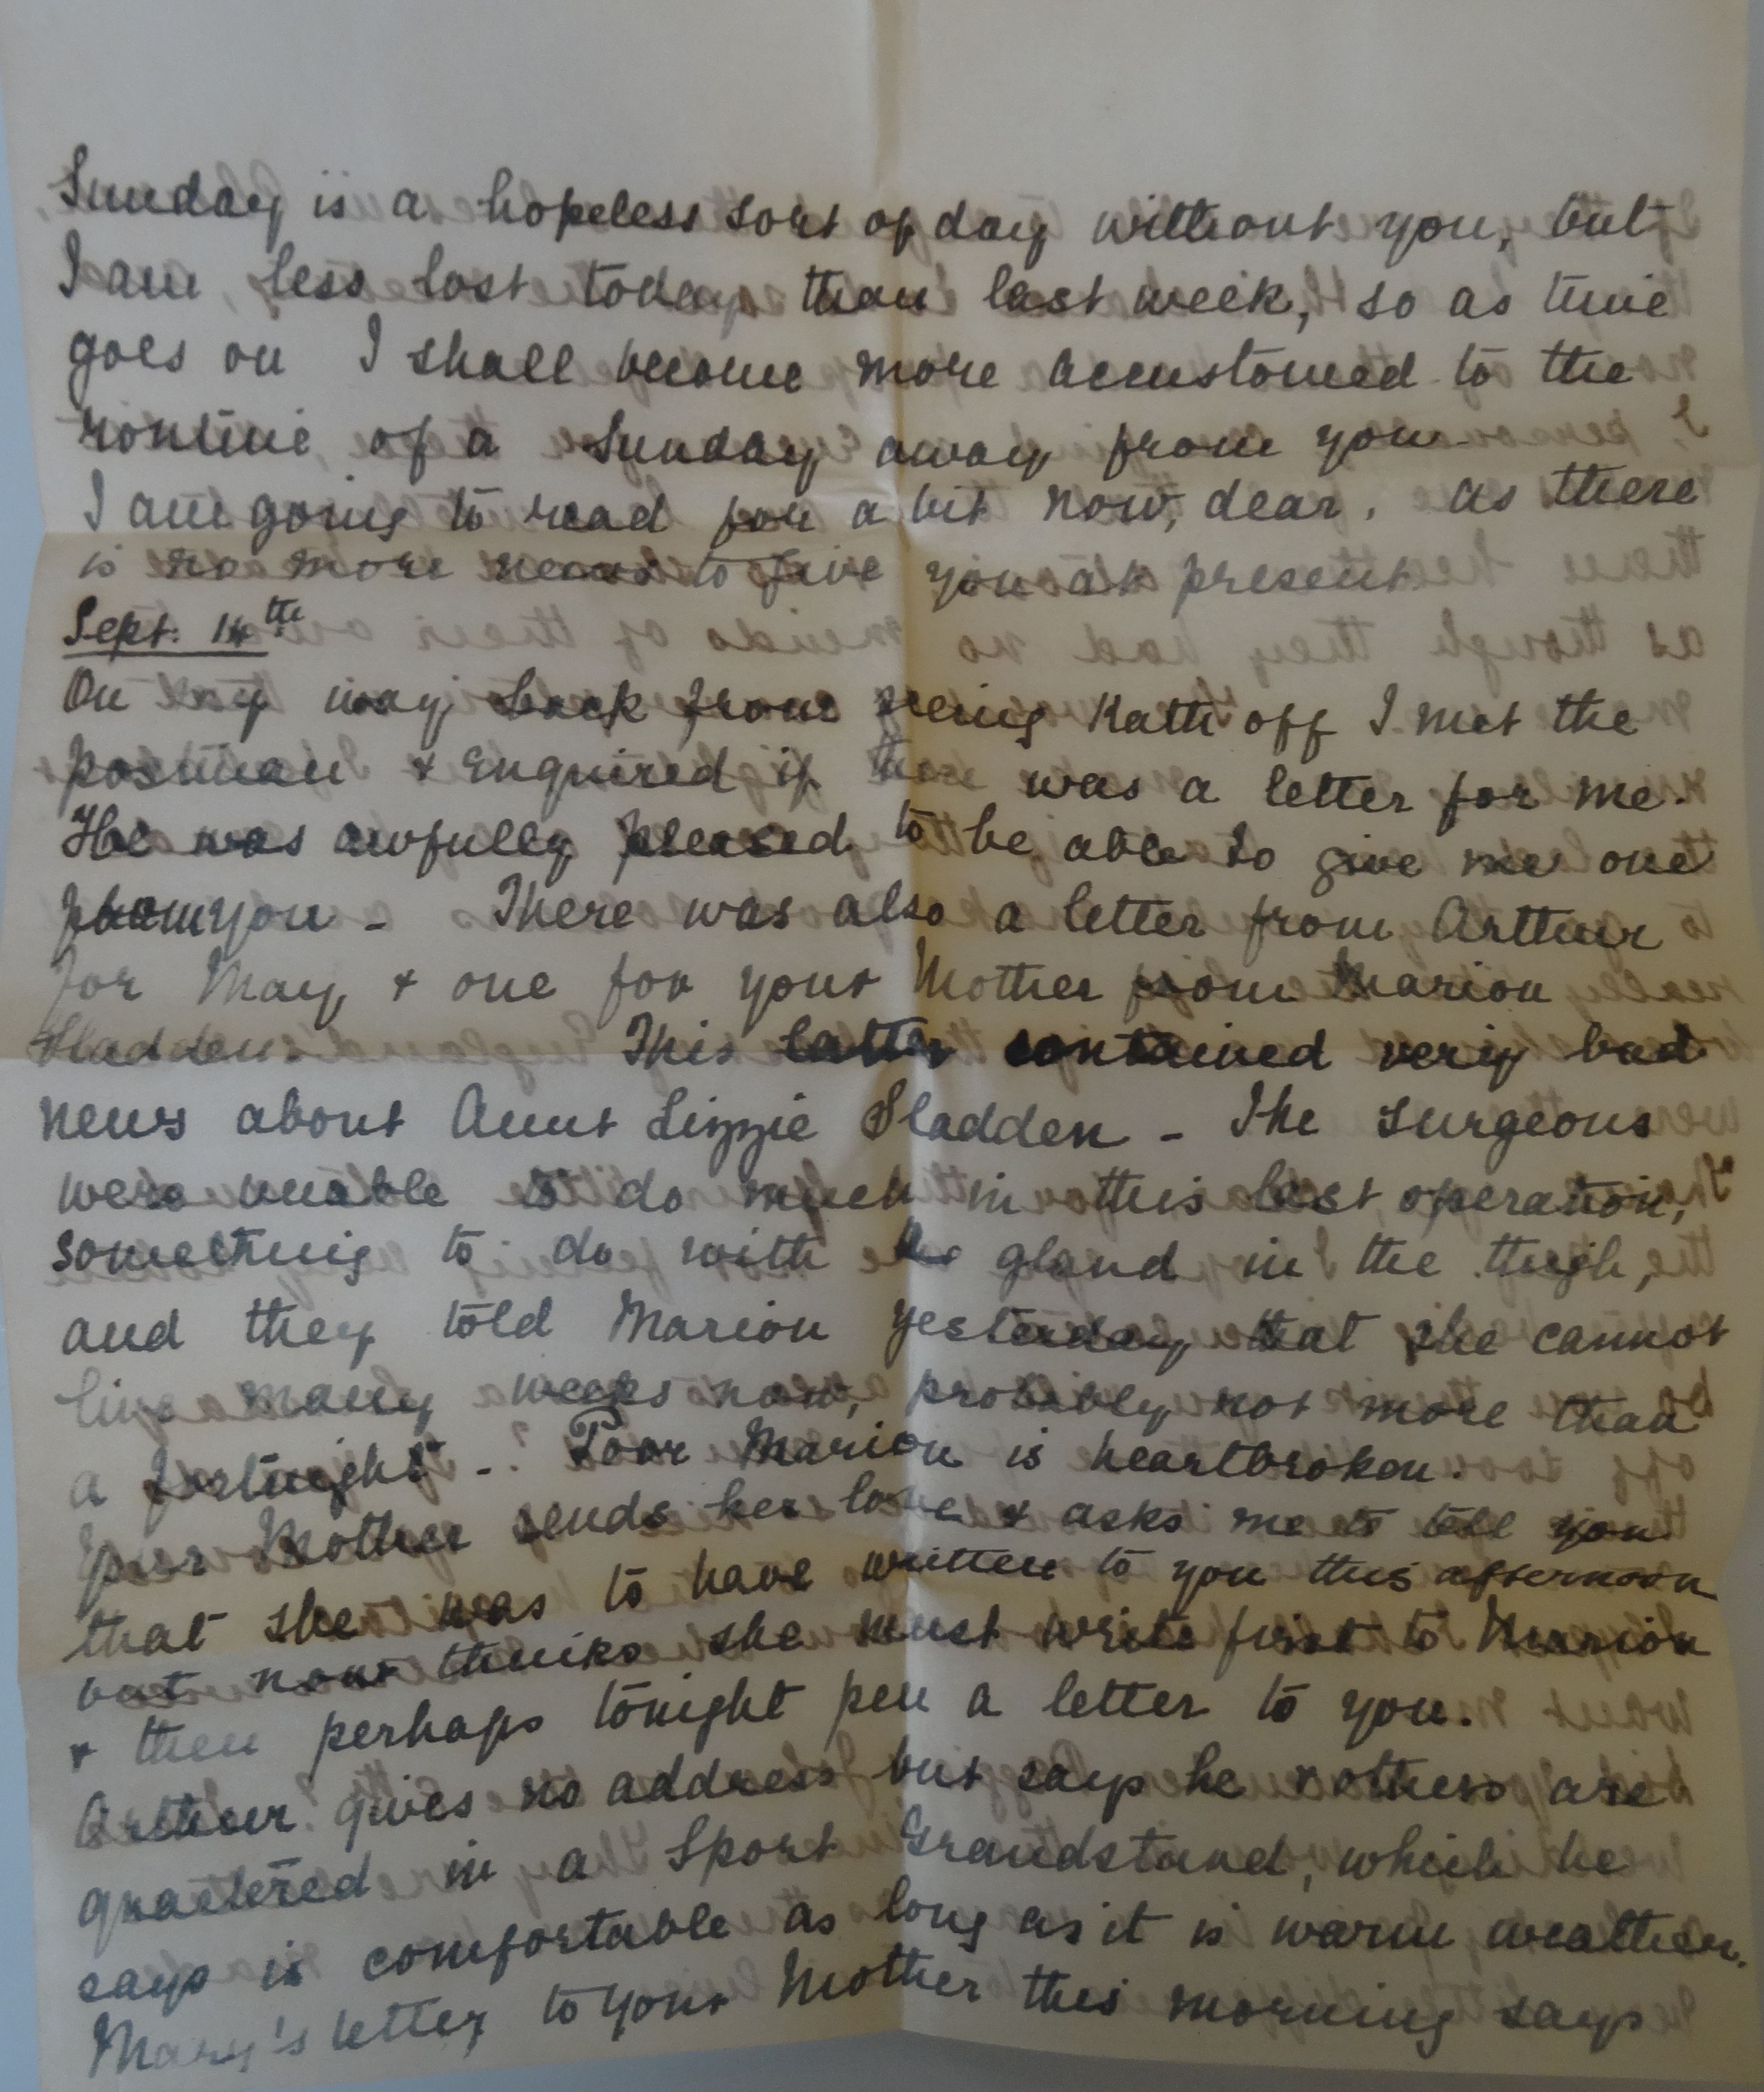 Sunday is a hopeless sort of day without you, but
I am less lost today than last week, so as time
goes on I shall become more accustomed to the
routine of a Sunday away from you.
I am going to read for a bit now, dear, as there
is no more news to give you at present.
Sept. 14th
On my way back from seeing Kath off I met the
postman & enquired if there was a letter for me.
He was awfully pleased to be able to give me one
from you - There was also a letter from Arthur
for May, & one for your Mother from Marion
Sladden. This latter contained very bad
news about Aunt Lizzie Sladden - The surgeons
were unable to do much in this last operation,
something to do with the gland in the thigh,
and they told Marion yesterday that she cannot
live many weeks now, probably not more than
a fortnight - Poor Marion is heartbroken.
Your Mother sends her love & asks me to tell you
that she was to have written to you this afternoon
but now thinks she must write first to Marion
& then perhaps tonight pen a letter to you.
Arthur gives no address but says he & others are
quartered in a Sport Grandstand, which he
says is comfortable as long as it is warm weather.
Mary's letter to your Mother this morning says